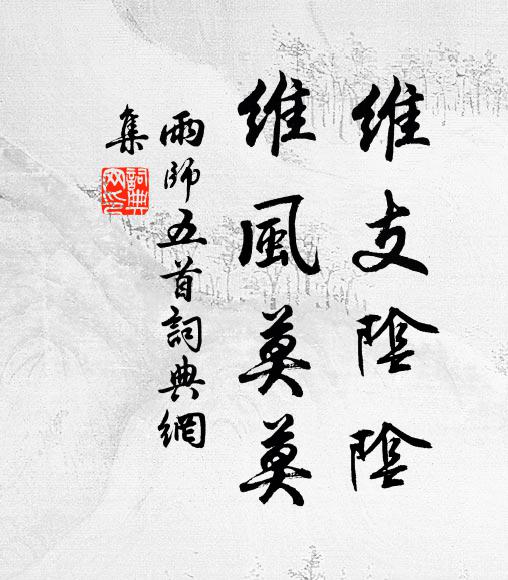 維支陰陰
維風莫莫
雨師五首詞典網
集
詞典
網